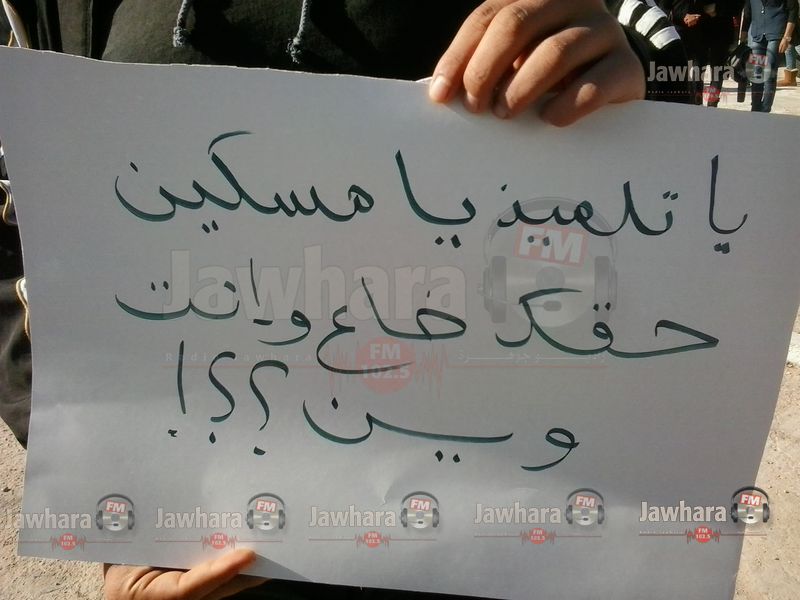 Jawhara FM
يا تلميذ يا مسكين
حقك ضاع وإنت
وين ؟؟!
Jawhara FM
Radio Jawhara FM 102.5 راديو جوهرة
Jawhara FM 102.5
Jawhara FM 102.5
Jawhara FM 102.5
Jawhara FM 102.5
Jawhara FM 102.5